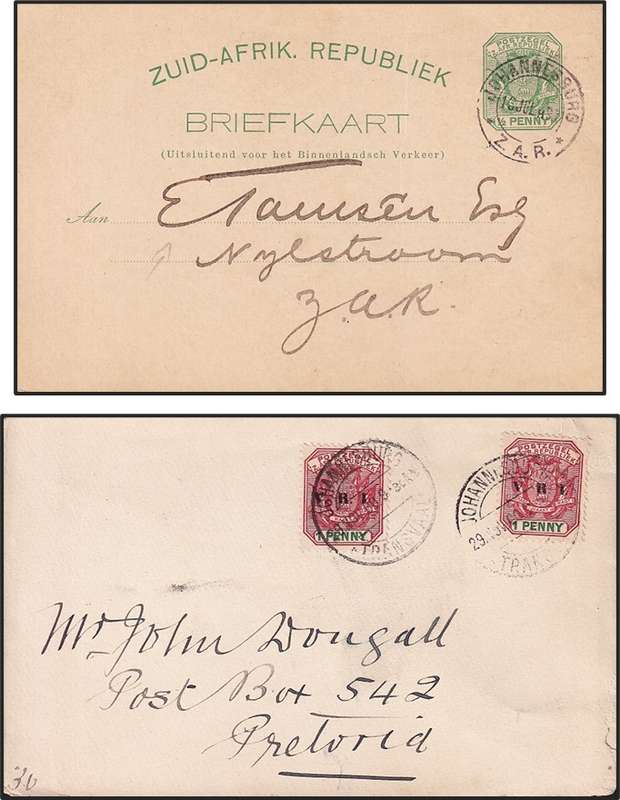 ZUID-AFRIK. REPUBLIEK
POSTZEGEL
Z. AFR. REPUBLIEK
½ PENNY
JOHANNESBURG
Z. A. R.
BRIEFKAART
(Uitsluitend voor het Binnenlandsch Verkeer)
Aan E Tamsen Esq
Nylstroom
Z.A.R.
POSTZEGEL
Z. AFR. REPUBLIEK
V. R. I.
1 PENNY
JOHANNESBURG
TRANSVAAL
POSTZEGEL
Z. AFR. REPUBLIEK
V. R. I.
1 PENNY
Mr John Dougall
Post Box 542
Pretoria
30